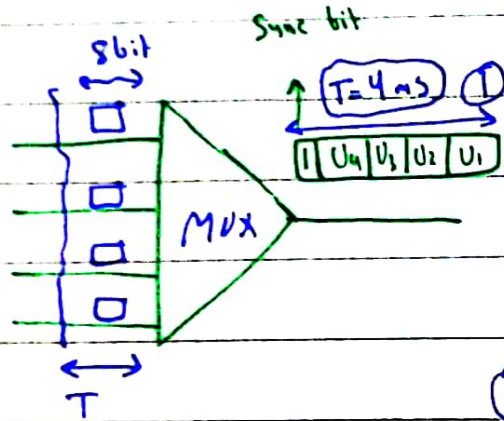 Sync bit
8bit
T=4 ms
1 U4 U3 U2 U1
MUX
T